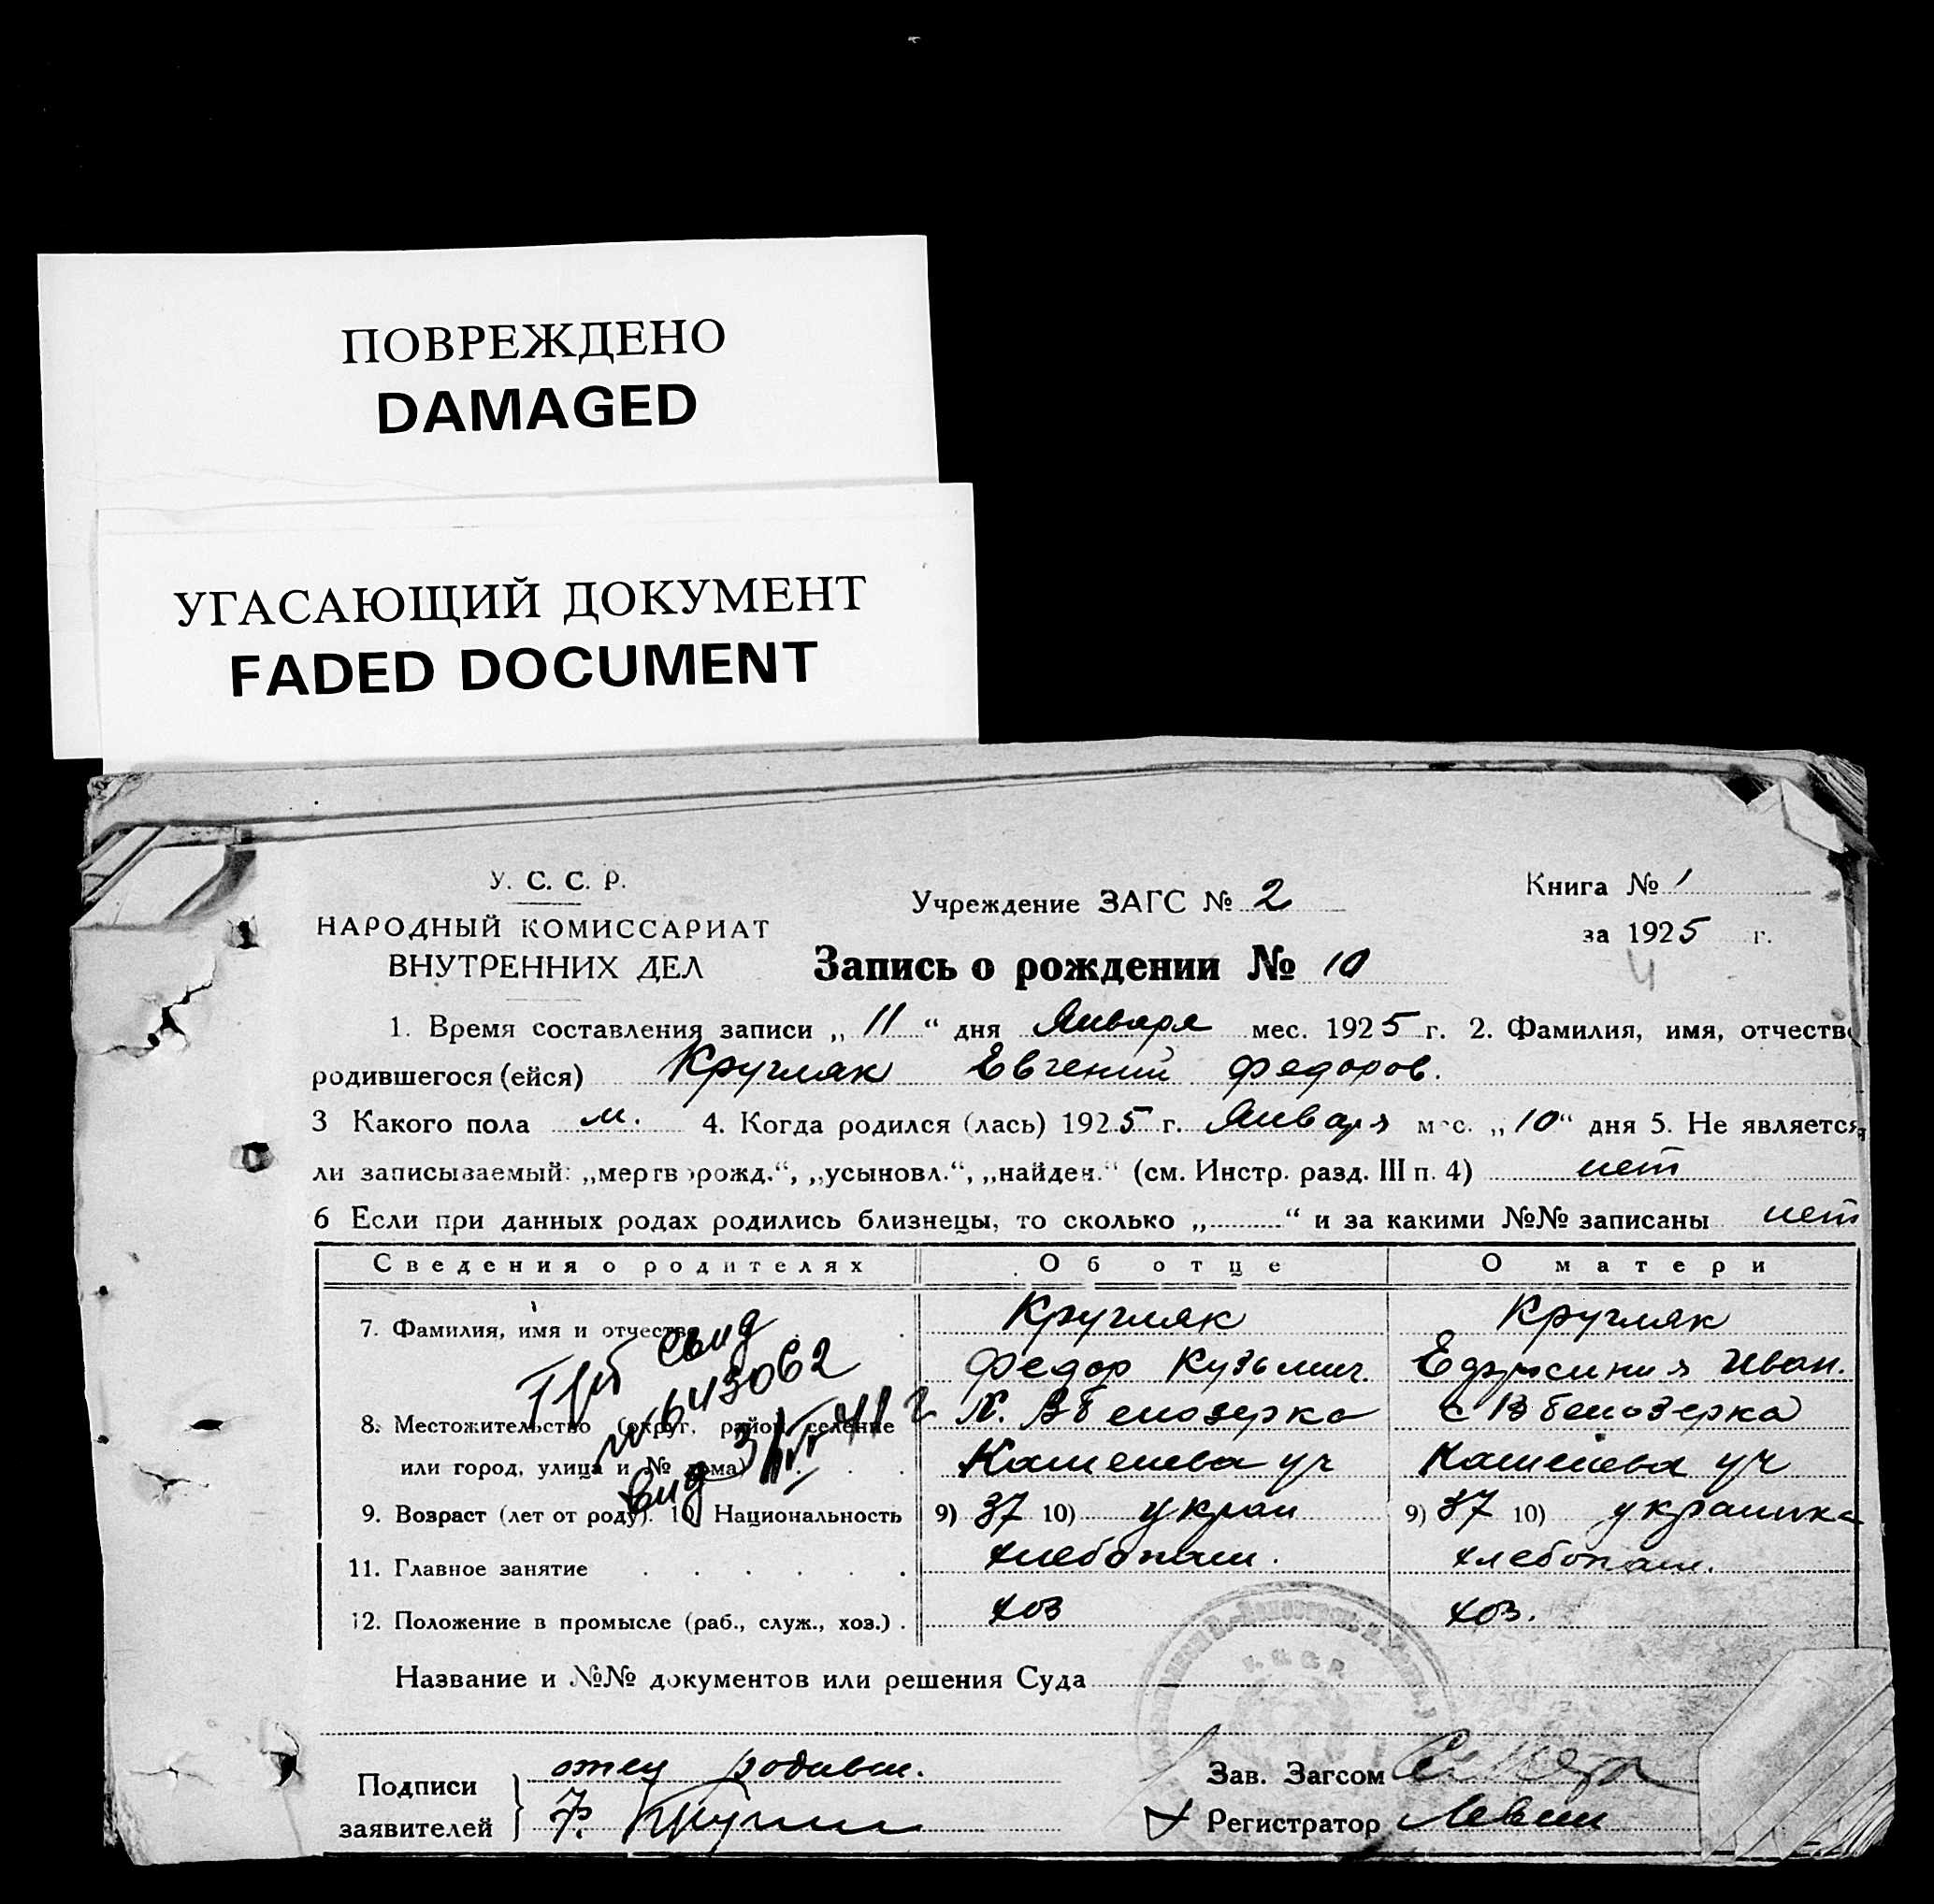 ПОВРЕЖДЕНО
DAMAGED
УГАСАЮЩИЙ ДОКУМЕНТ
FADED DOCUMENT
У. С. С. Р.
НАРОДНЫЙ КОМИССАРИАТ
ВНУТРЕННИХ ДЕЛ
Учреждение ЗАГС № 2
Книга № 1
за 1925 г.
4
Запись о рождении № 10
1. Время составления записи „ 11 “ дня Января мес. 1925 г. 2. Фамилия, имя, отчество
родившегося (ейся) Кругляк Евгений Федоров.
3 Какого пола м. 4. Когда родился (лась) 1925 г. Января мес. „ 10 “ дня 5. Не является
ли записываемый: „мертворожд.“, „усыновл.“, „найден.“ (см. Инстр. разд. III п. 4) нет
6 Если при данных родах родились близнецы, то сколько „ “ и за какими №№ записаны нет
Сведения о родителях Об отце О матери
7. Фамилия, имя и отчество Кругляк Кругляк
Федор Кузьмич. Иван.
8. Местожительство (округ, район, селение Белозерка с В Белозерка
или город, улица и № дома) уч уч
9. Возраст (лет от роду). 10) Национальность 9) 37 10) украи 9) 37 10) украинка
11. Главное занятие хлебопаш. хлебопаш.
12. Положение в промысле (раб., служ., хоз.) хоз хоз.
свид
№ 643062
Название и №№ документов или решения Суда
У. С. С. Р.
Подписи заявителей отец родивш.
Ф.
Зав. Загсом
Регистратор Левин